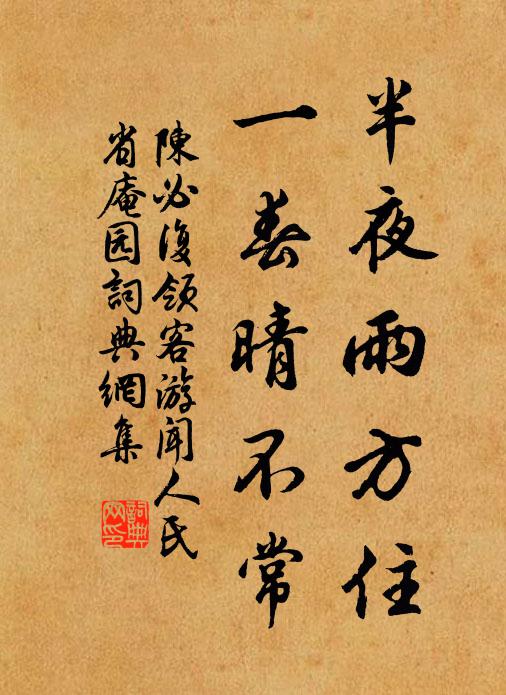 半夜雨方住
一春晴不常
陳必復領客游闻人氏
省庵园詞典網集
詞典
网印